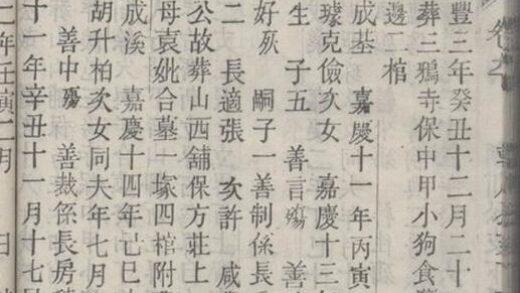 豐三年癸丑十二月二十
葬三鴉寺保中甲小狗食
邊二棺
成基 嘉慶十一年丙寅
璩克儉次女 嘉慶十三年
生 子五 善言殤 善
好殀 嗣子一善制係長
二 長適張 次許 咸
公故葬山西舖保方莊上
母袁妣合墓一塚四棺附
成溪 嘉慶十四年己巳
胡升柏次女同夫年七月
善中殤 善裁係長房
十一年辛丑十一月十七
年壬寅二月 日